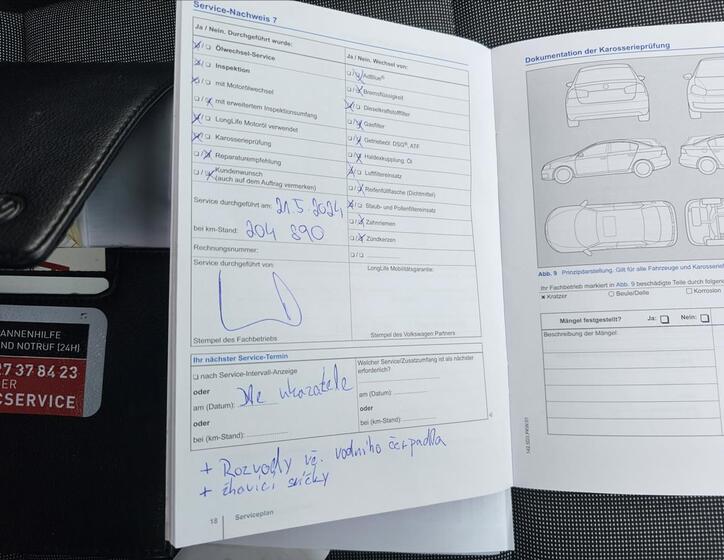 Service-Nachweis 7
Ja / Nein. Durchgeführt wurde:
Ölwechsel-Service
Inspektion
mit Motorölwechsel
mit erweitertem Inspektionsumfang
LongLife Motoröl verwendet
Karosserieprüfung
Reparaturempfehlung
Kundenwunsch
(auch auf dem Auftrag vermerken)
Service durchgeführt am: 21.5.2024
bei km-Stand: 204 890
Rechnungsnummer:
Service durchgeführt von:
Stempel des Fachbetriebs
Ja / Nein. Wechsel von:
AdBlue®
Bremsflüssigkeit
Dieselkraftstofffilter
Gasfilter
Getriebeöl: DSG®, ATF
Haldexkupplung: Öl
Luftfiltereinsatz
Reifenfüllflasche (Dichtmittel)
Staub- und Pollenfiltereinsatz
Zahnriemen
Zündkerzen
LongLife Mobilitätsgarantie:
Stempel des Volkswagen Partners
Ihr nächster Service-Termin
nach Service-Intervall-Anzeige
oder
am (Datum): Dle ukazatele
oder
bei (km-Stand):
Welcher Service/Zusatzumfang ist als nächster
erforderlich?
am (Datum):
oder
bei (km-Stand):
+ Rozvody vč. vodního čerpadla
+ žhavící svíčky
18 Serviceplan
Dokumentation der Karosserieprüfung
Abb. 9 Prinzipdarstellung. Gilt für alle Fahrzeuge und
Ihr Fachbetrieb markiert in Abb. 9 beschädigte Teile durch
Kratzer Beule/Delle Korrosion
Mängel festgestellt? Ja: Nein:
Beschreibung der Mängel:
ANNENHILFE
ND NOTRUF (24H)
7 37 84 23
DER
CSERVICE